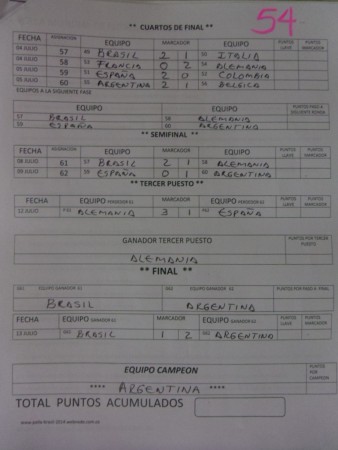 54
** CUARTOS DE FINAL **
FECHA ASIGNACIÓN EQUIPO MARCADOR EQUIPO PUNTOS LLAVE PUNTOS MARCADOR
04 JULIO 57 49 BRASIL 2 1 50 ITALIA
04 JULIO 58 53 FRANCIA 0 2 54 ALEMANIA
05 JULIO 59 51 ESPAÑA 2 0 52 COLOMBIA
05 JULIO 60 55 ARGENTINA 2 1 56 BELGICA
EQUIPOS A LA SIGUIENTE FASE
EQUIPO EQUIPO
57 BRASIL 58 ALEMANIA
59 ESPAÑA 60 ARGENTINA
** SEMIFINAL **
FECHA ASIGNACIÓN EQUIPO MARCADOR EQUIPO PUNTOS LLAVE PUNTOS MARCADOR
08 JULIO 61 57 BRASIL 2 1 58 ALEMANIA
09 JULIO 62 59 ESPAÑA 0 1 60 ARGENTINA
** TERCER PUESTO **
FECHA EQUIPO PERDEDOR 61 MARCADOR EQUIPO PERDEDOR 62 PUNTOS LLAVE PUNTOS MARCADOR
12 JULIO P61 ALEMANIA 3 1 P62 ESPAÑA
GANADOR TERCER PUESTO PUNTOS POR TERCER PUESTO
ALEMANIA
** FINAL **
G61 EQUIPO GANADOR 61 G62 EQUIPO GANADOR 62 PUNTOS POR PASO A FINAL
BRASIL ARGENTINA
FECHA EQUIPO GANADOR 61 MARCADOR EQUIPO GANADOR 62 PUNTOS LLAVE PUNTOS MARCADOR
13 JULIO G61 BRASIL 1 2 G62 ARGENTINA
EQUIPO CAMPEON PUNTOS POR CAMPEON
**** ARGENTINA ****
TOTAL PUNTOS ACUMULADOS